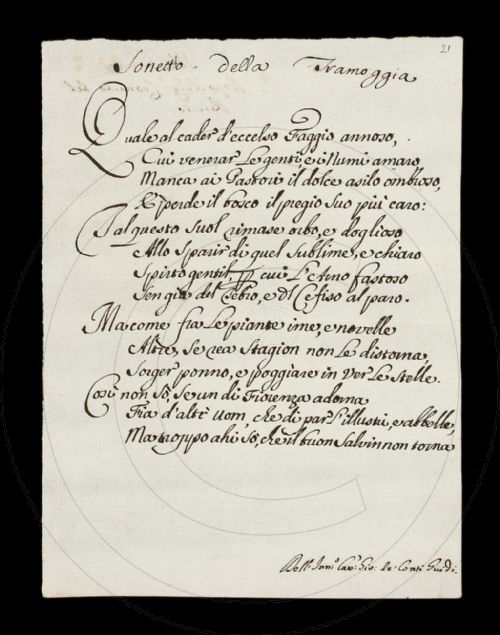 21
Sonetto della Tramoggia
Quale al cader d'eccelso Faggio annoso,
Cui venerar le genti, e i Numi amaro
Manca ai Pastori il dolce asilo ombroso,
E perde il bosco il pregio suo più caro:
Tal questo suol rimase orbo, e doglioso
Allo sparir di quel sublime, e chiaro
Spirto gentil, per cui l'Arno fastoso
Sen gia del Tebro, e del Cefiso al paro.
Ma come fra le piante ime, e novelle
Altre, se rea Stagion non le distorna,
Sorger ponno, e poggiare in ver le stelle.
Così non sò, se un dì Fiorenza adorna
Fia d'altr' uom, che di par l'illustri, e abbelle,
Ma troppo ahi sò, che il buon Salvin non torna
Dell' Cav. Gio: de Conti Guidi.